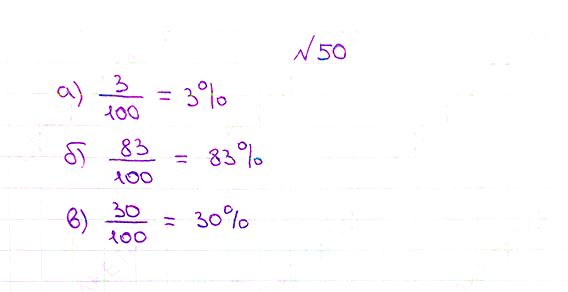 №50
а) 3/100 = 3%
б) 83/100 = 83%
в) 30/100 = 30%